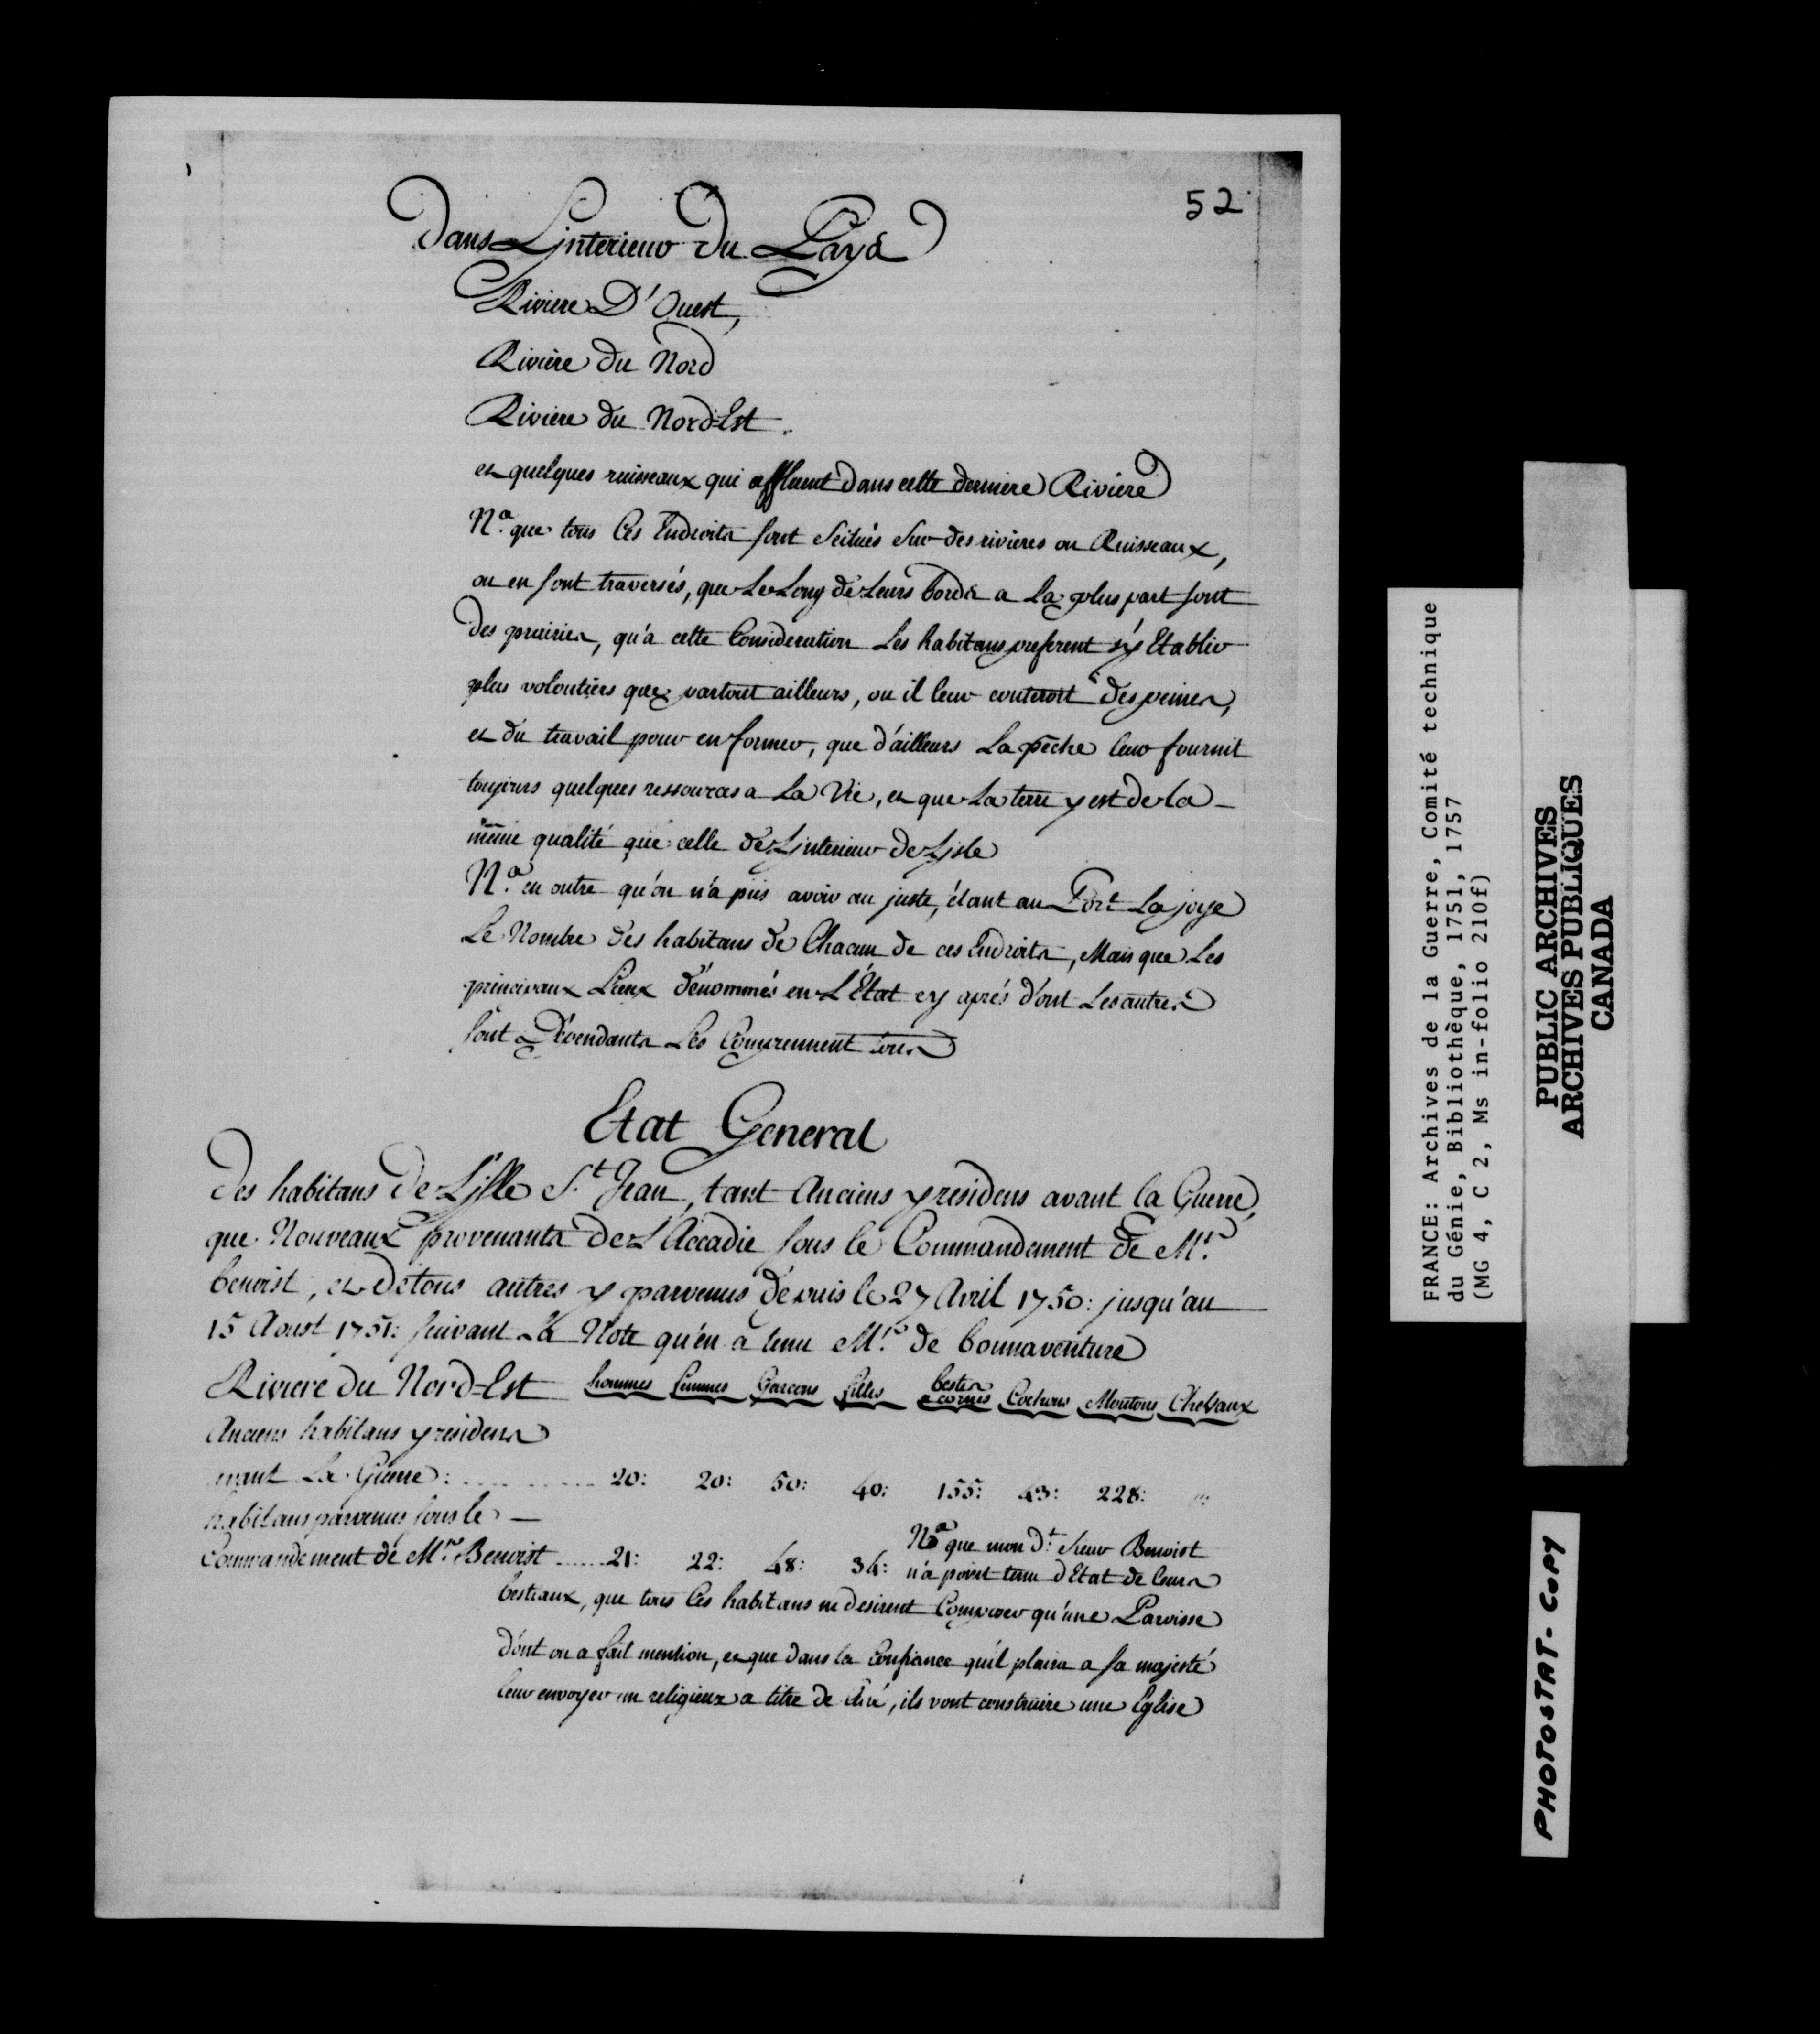 52
Dans L'jnterieur Du Pays
Riviere D'Ouest,
Riviere du Nord
Riviere du Nord=Est.
et quelques ruisseaux qui affluent dans cette derniere Riviere
N.ª que tous Ces Endroits sont Scitués Sur des rivieres ou Ruisseaux,
ou en sont traversés, que Le Long de Leurs bords a La plus part sont
Des prairies, qu'a cette Consideration Les habitans preferent s'y Etablir
plus volontiers que partout ailleurs, ou il leur couteroit des peines,
et du travail pour en former, que d'ailleurs La pêche leur fournit
toujours quelques ressources a La Vie, et que La terre y est de la
même qualité que celle de L'jnterieur de L'jsle
N.ª en outre qu'on n'a pús avoir au juste, étant au Port La joye
Le Nombre des habitans de Chacun de ces Endroits, Mais que Les
principaux Lieux dénommés en L'État cy aprés dont Les autres
sont Dépendants Les Comprennent tous
Etat General
Des habitans de L'jsle S.t Jean, tant Anciens y residens avant la Guerre,
que Nouveaux provenants de L'Accadie sous le Commandement de M.r
benoist, et de tous autres y parvenus depuis le 27 Avril 1750: jusqu'au
15 Aoust 1751: suivant La Note qu'en a tenu M.r de bonnaventure
Riviere du Nord=Est hommes femmes Garcons filles bestes a cornes Cochons Moutons Chevaux
Anciens habitans y residens
avant La Guerre: ............ 20: 20: 50: 40: 155: 43: 228: "":
habitans parvenus sous le
Commandement de M.r Benoist ...... 21: 22: 48: 34: Nª que mon d.t Sieur Benoist
n'a point tenu d'Etat de leurs
bestiaux, que tous Ces habitans ne desirent Composer qu'une Paroisse
dont on a fait mention, et que dans la Confiance qu'il plaira a sa majesté
leur envoyer un religieux a titre de Curé, ils vont construire une Eglise
FRANCE: Archives de la Guerre, Comité technique
du Génie, Bibliothèque, 1751, 1757
(MG 4, C 2, Ms in-folio 210f)
PUBLIC ARCHIVES
ARCHIVES PUBLIQUES
CANADA
PHOTOSTAT-COPY